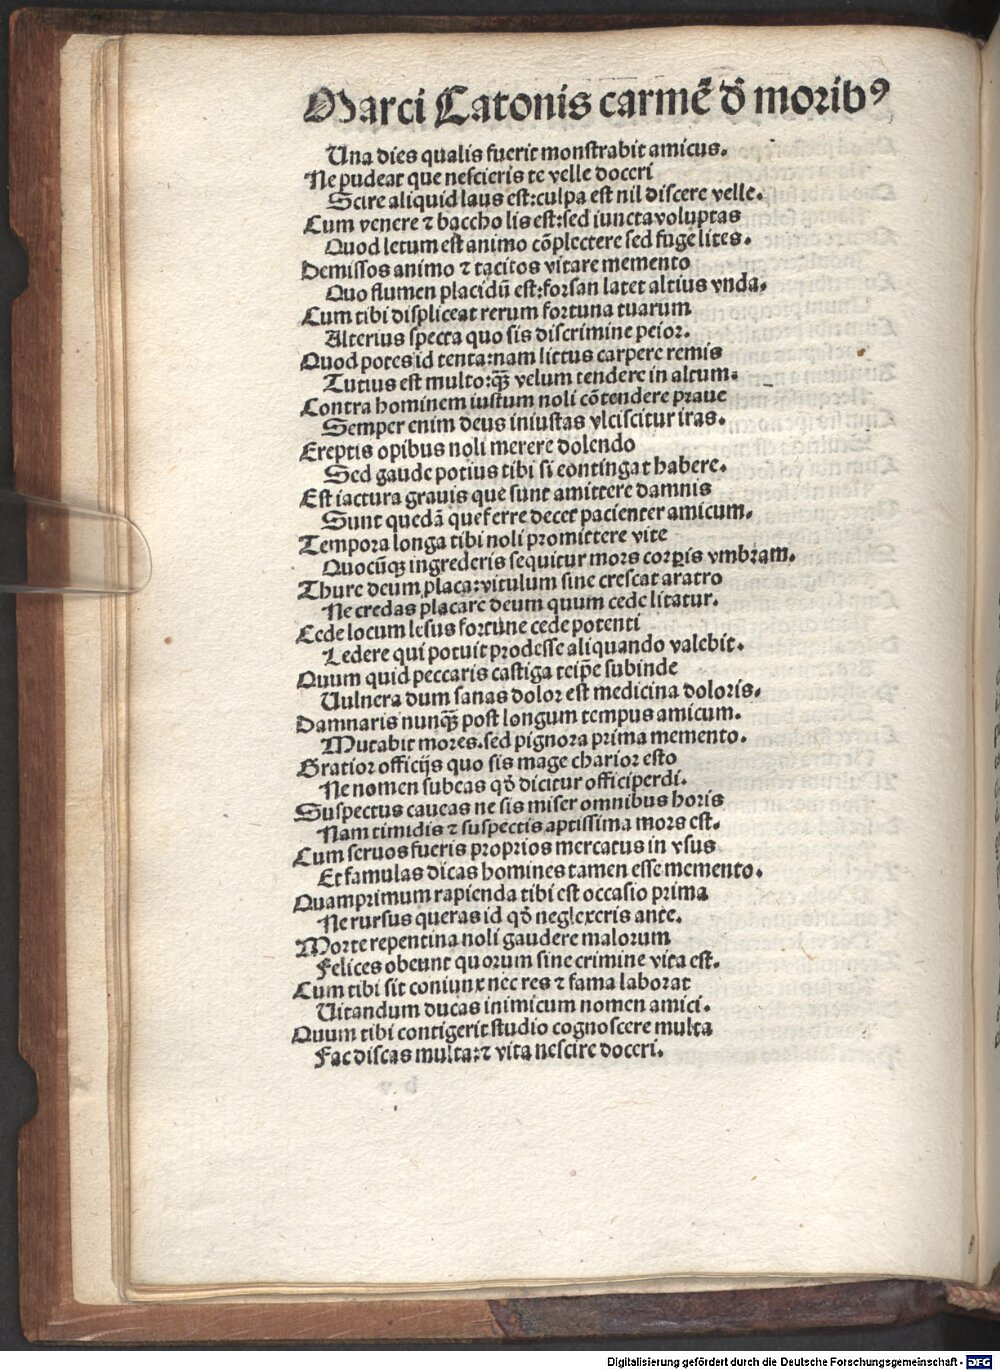 Marci Catonis carmē dō moribꝰ
Una dies qualis fuerit monstrabit amicus.
Ne pudeat que nescieris te velle doceri
Scire aliquid laus est:culpa est nil discere velle.
Cum venere ⁊ baccho lis est:sed iuncta voluptas
Quod letum est animo cōplectere sed fuge lites.
Demissos animo ⁊ tacitos vitare memento
Quo flumen placidū est:forsan latet altius vnda.
Cum tibi displiceat rerum fortuna tuarum
Alterius specta quo sis discrimine peior.
Quod potes id tenta:nam littus carpere remis
Tutius est multo:qꝫ velum tendere in altum.
Contra hominem iustum noli cōtendere praue
Semper enim deus iniustas vlciscitur iras.
Ereptis opibus noli merere dolendo
Sed gaude potius tibi si contingat habere.
Est iactura grauis que sunt amittere damnis
Sunt quedā que ferre decet pacienter amicum.
Tempora longa tibi noli promittere vite
Quocūqꝫ ingrederis sequitur mors corꝑis vmbram.
Thure deum placa:vitulum sine crescat aratro
Ne credas placare deum quum cede litatur.
Cede locum lesus fortune cede potenti
Ledere qui potuit prodesse aliquando valebit.
Quum quid peccaris castiga teip̄e subinde
Uulnera dum sanas dolor est medicina doloris.
Damnaris nunqꝫ post longum tempus amicum.
Mutabit mores.sed pignora prima memento.
Gratior officijs quo sis mage charior esto
Ne nomen subeas qd̄ dicitur officiperdi.
Suspectus caueas ne sis miser omnibus horis
Nam timidis ⁊ suspectis aptissima mors est.
Cum seruos fueris proprios mercatus in vsus
Et famulas dicas homines tamen esse memento.
Quamprimum rapienda tibi est occasio prima
Ne rursus queras id qd̄ neglexeris ante.
Morte repentina noli gaudere malorum
Felices obeunt quorum sine crimine vita est.
Cum tibi sit coniunx nec res ⁊ fama laborat
Uitandum ducas inimicum nomen amici.
Quum tibi contigerit studio cognoscere multa
Fac discas multa:⁊ vita nescire doceri.
Digitalisierung gefördert durch die Deutsche Forschungsgemeinschaft - DFG